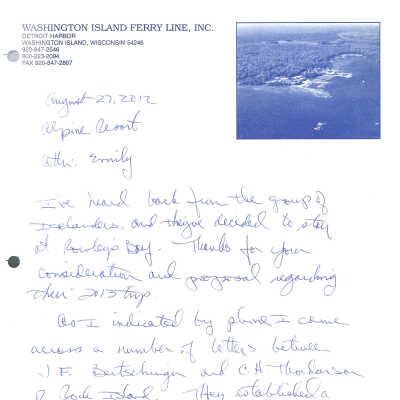 WASHINGTON ISLAND FERRY LINE, INC.
DETROIT HARBOR
WASHINGTON ISLAND, WISCONSIN 54246
920-847-2546
800-223-2094
FAX 920-847-2807
August 27, 2012
Alpine Resort
Attn: Emily
I've heard back from the group of
Icelanders, and they've decided to stay
at Rowley's Bay. Thanks for your
consideration and proposal regarding
their 2013 trip
As I indicated by phone I came
across a number of letters between
J.E. Bertschinger and C.H. Thordarson
Rock Island. They established a